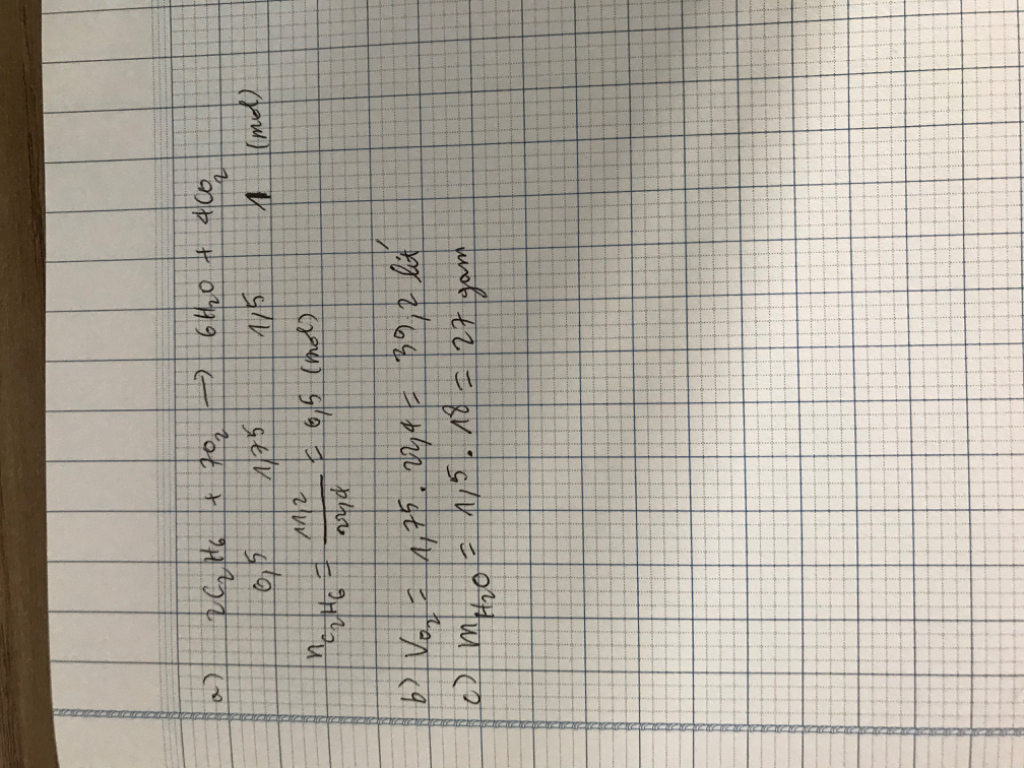 a) 2C₂H₆ + 7O₂ → 6H₂O + 4CO₂
0,5 1,75 1,5 1 (mol)
nC₂H₆ = 11,2 / 22,4 = 0,5 (mol)
b) VO₂ = 1,75 . 22,4 = 39,2 lít
c) mH₂O = 1,5 . 18 = 27 gam